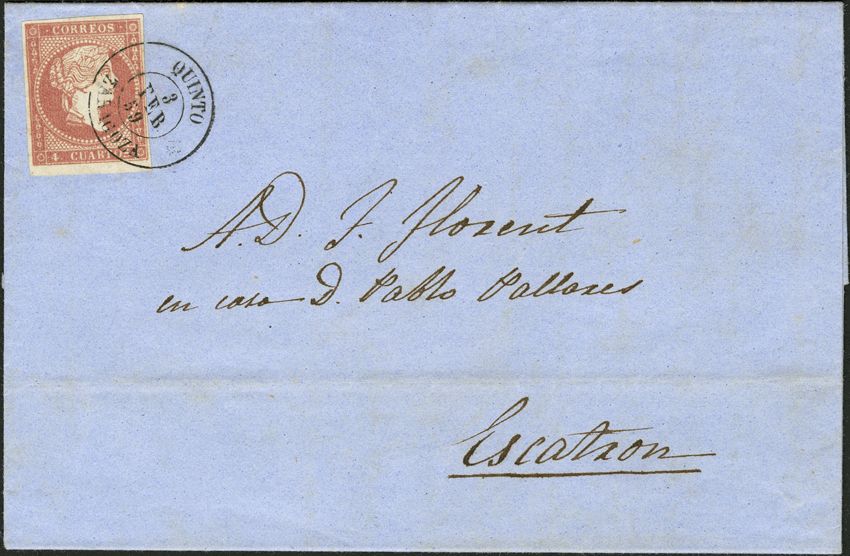 CORREOS
4 CUART
QUINTO
3
FEB
59
ZARAGOZA
A. D. J. Florent
en casa D. Pablo Pallares
Escatron